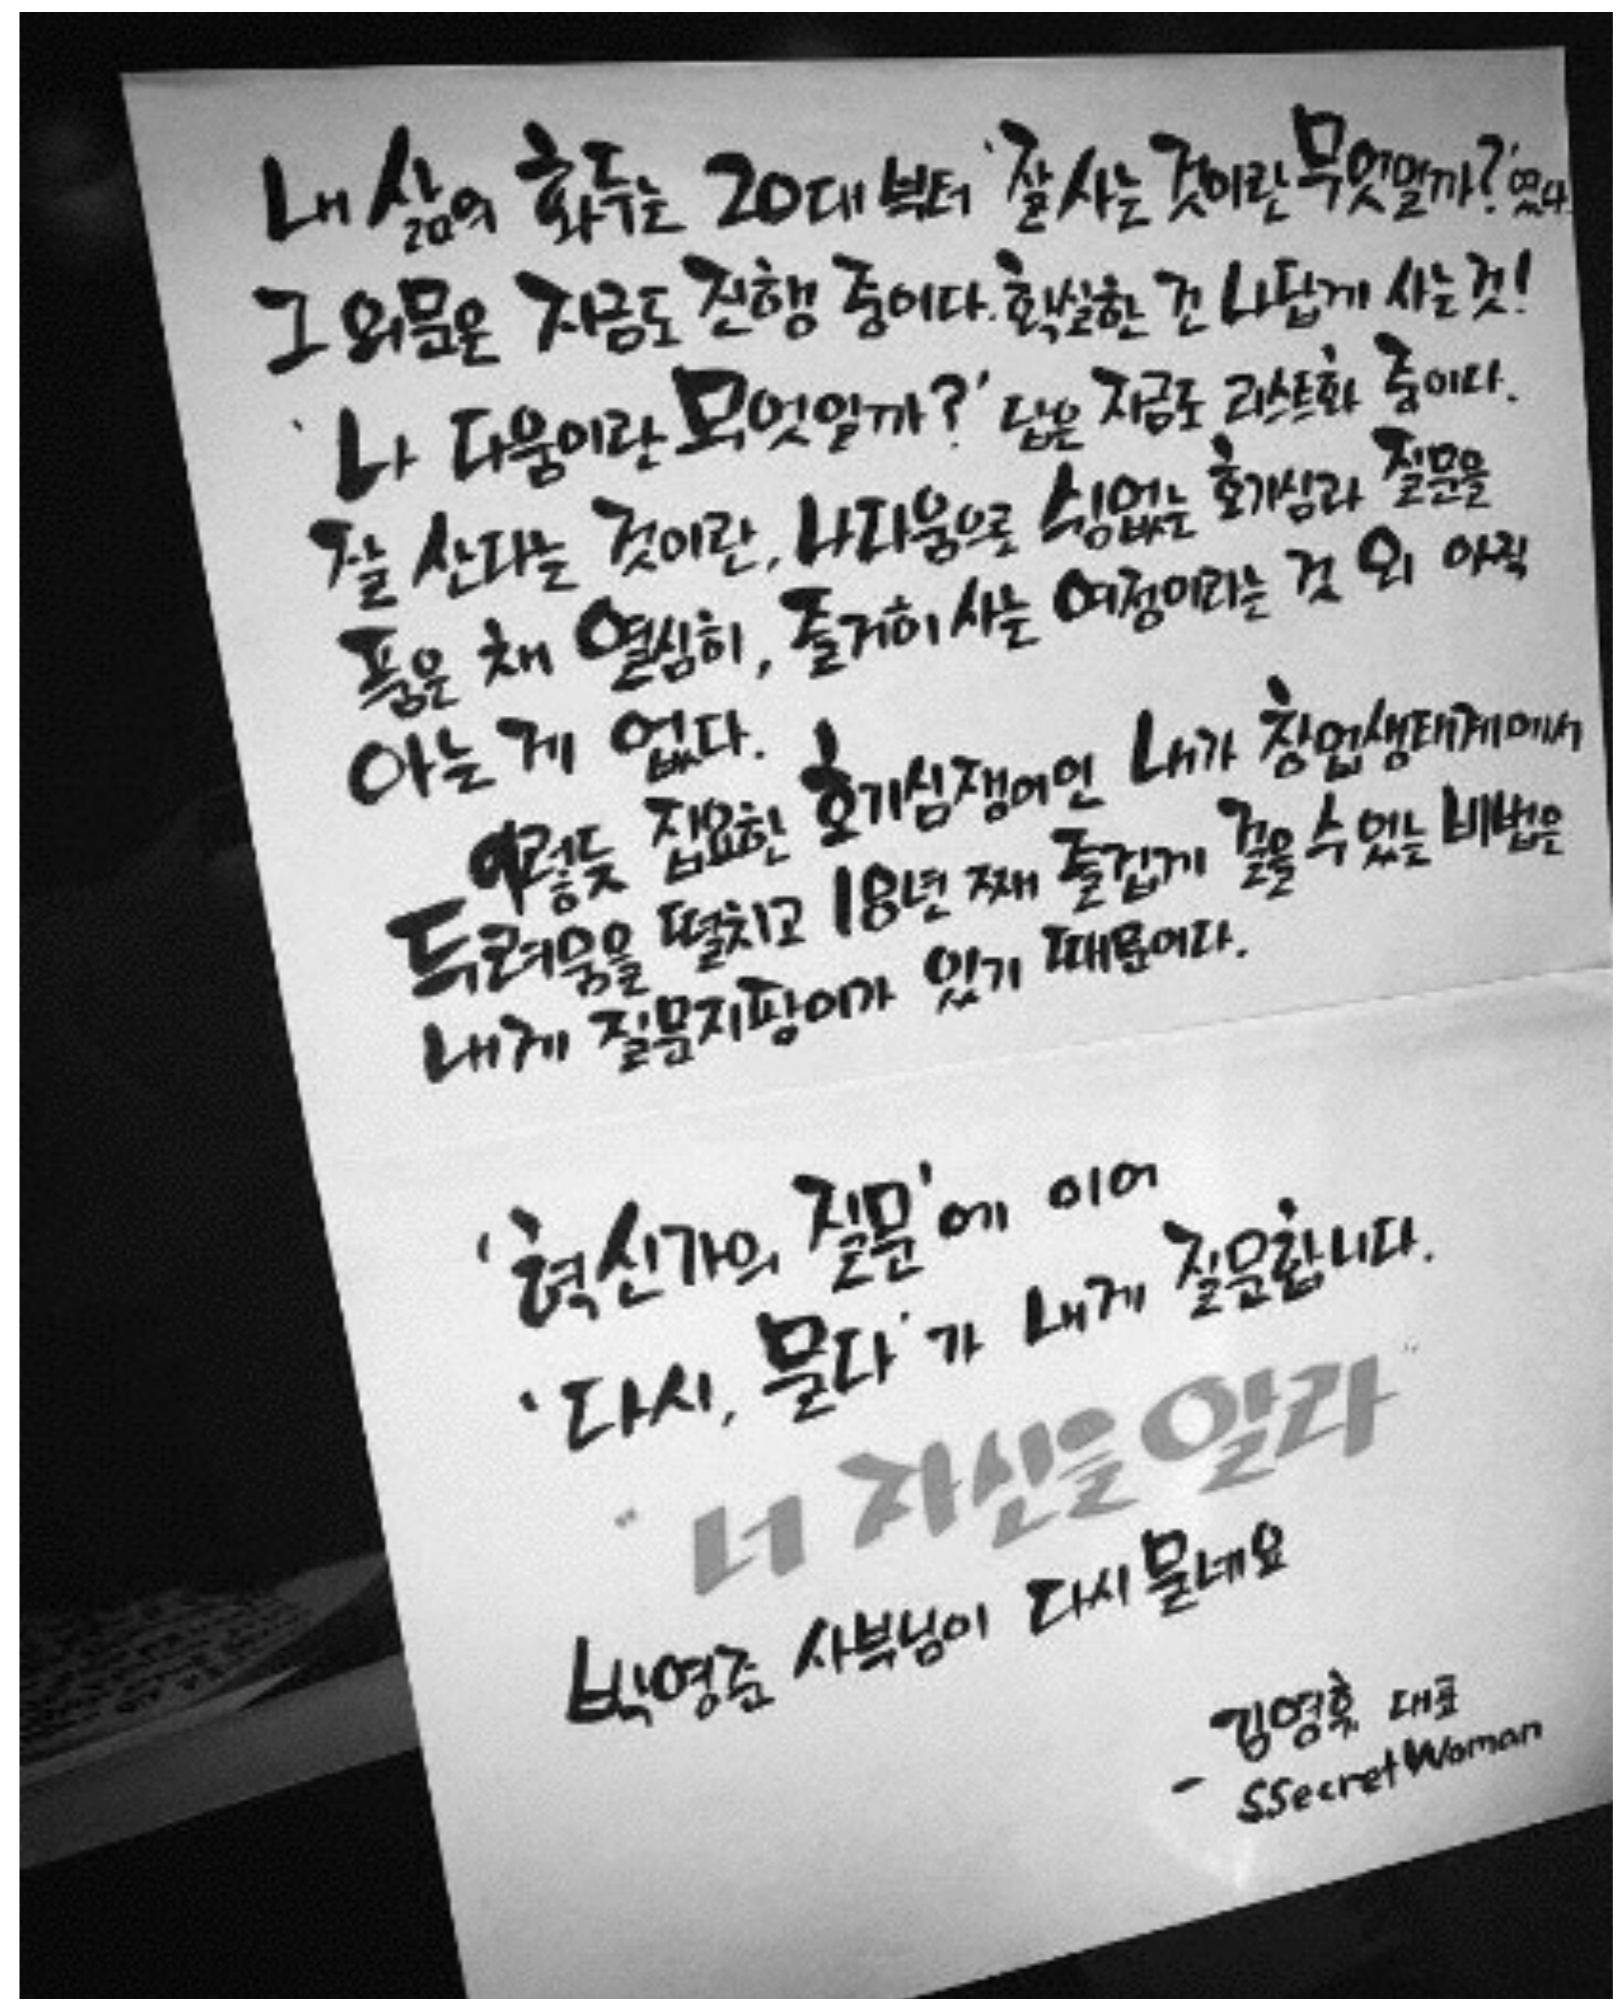 내 삶의 화두는 20대 부터 '잘 사는 것이란 무엇일까?'였다.
그 의문은 지금도 진행 중이다. 확실한 건 나답게 사는 것!
'나 다움이란 무엇일까?' 답은 지금도 리스트화 중이다.
잘 산다는 것이란, 나다움으로 쉼없는 호기심과 질문을
품은 채 열심히, 즐거이 사는 여정이라는 것 외 아직
아는 게 없다.
이렇듯 집요한 호기심쟁이인 내가 창업생태계에서
두려움을 떨치고 18년 째 즐겁게 걸을 수 있는 비법은
내게 질문지팡이가 있기 때문이다.
'혁신가의 질문'에 이어
'다시, 묻다'가 내게 질문합니다.
"너 자신을 알라"
박영준 사부님이 다시 묻네요
- 김영휴 대표
SSecret Woman